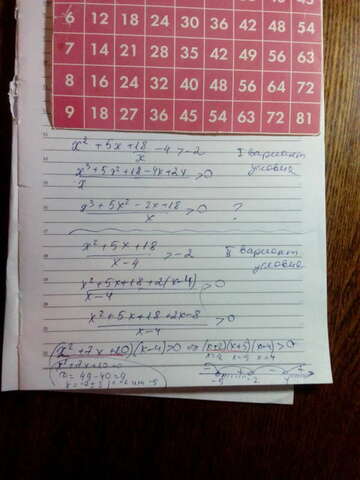 6 12 18 24 30 36 42 48 54
7 14 21 28 35 42 49 56 63
8 16 24 32 40 48 56 64 72
9 18 27 36 45 54 63 72 81
x² + 5x + 18 / x - 4 > -2 I вариант
x³ + 5x² + 18 - 4x + 2x / x > 0 условия
x³ + 5x² - 2x + 18 / x > 0 ?
x² + 5x + 18 / x - 4 > -2 II вариант условия
x² + 5x + 18 + 2(x-4) / x - 4 > 0
x² + 5x + 18 + 2x - 8 / x - 4 > 0
(x² + 7x + 10)(x-4) > 0 ⇒ (x+2)(x+5)(x-4) > 0
x² + 7x + 10 = 0
D = 49 - 40 = 9
-5 -2 4